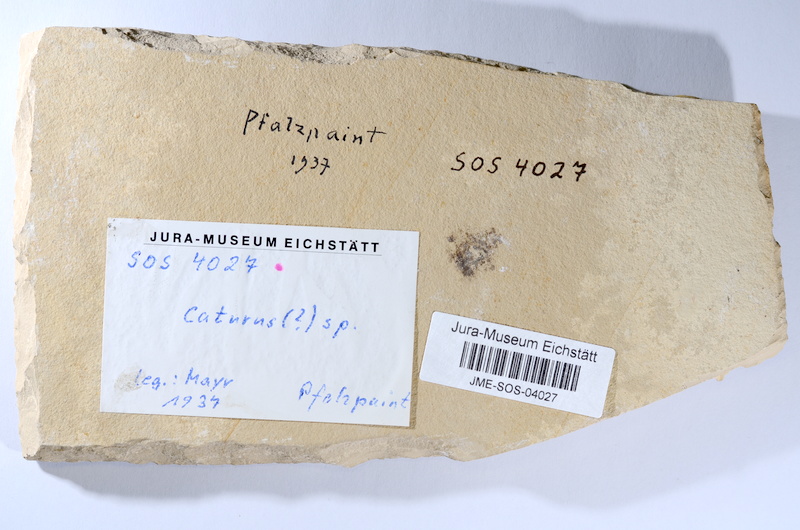 Pfalzpaint
1937
SOS 4027
JURA-MUSEUM EICHSTÄTT
SOS 4027
Caturus(?) sp.
leg.: Mayr
1937
Pfalzpaint
Jura-Museum Eichstätt
JME-SOS-04027